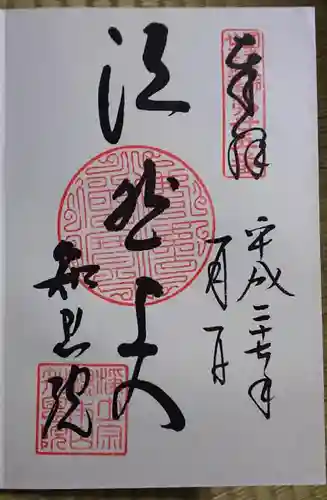 奉拝
平成二十七年
一月一日
法然上人
知恩院